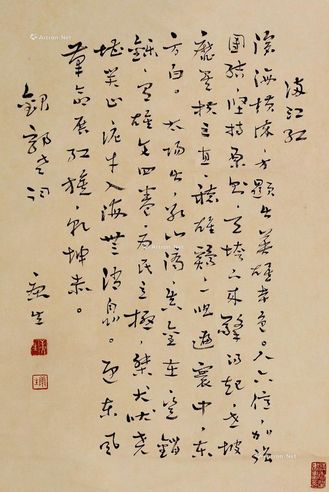 满江红
沧海横流方显出英雄本色。人六億,加强
團結,坚持原则。天垮下来擎得起,世披
靡矣扶之直,聽雄鷄一唱遍寰中,東
方白。太陽出,冰山滴,真金在,豈銷
鑠,有雄文四卷,为民立極,桀犬吠堯
堪笑止,泥牛入海無消息。迎東風
革命展红旗,乾坤赤。
錄郭老词